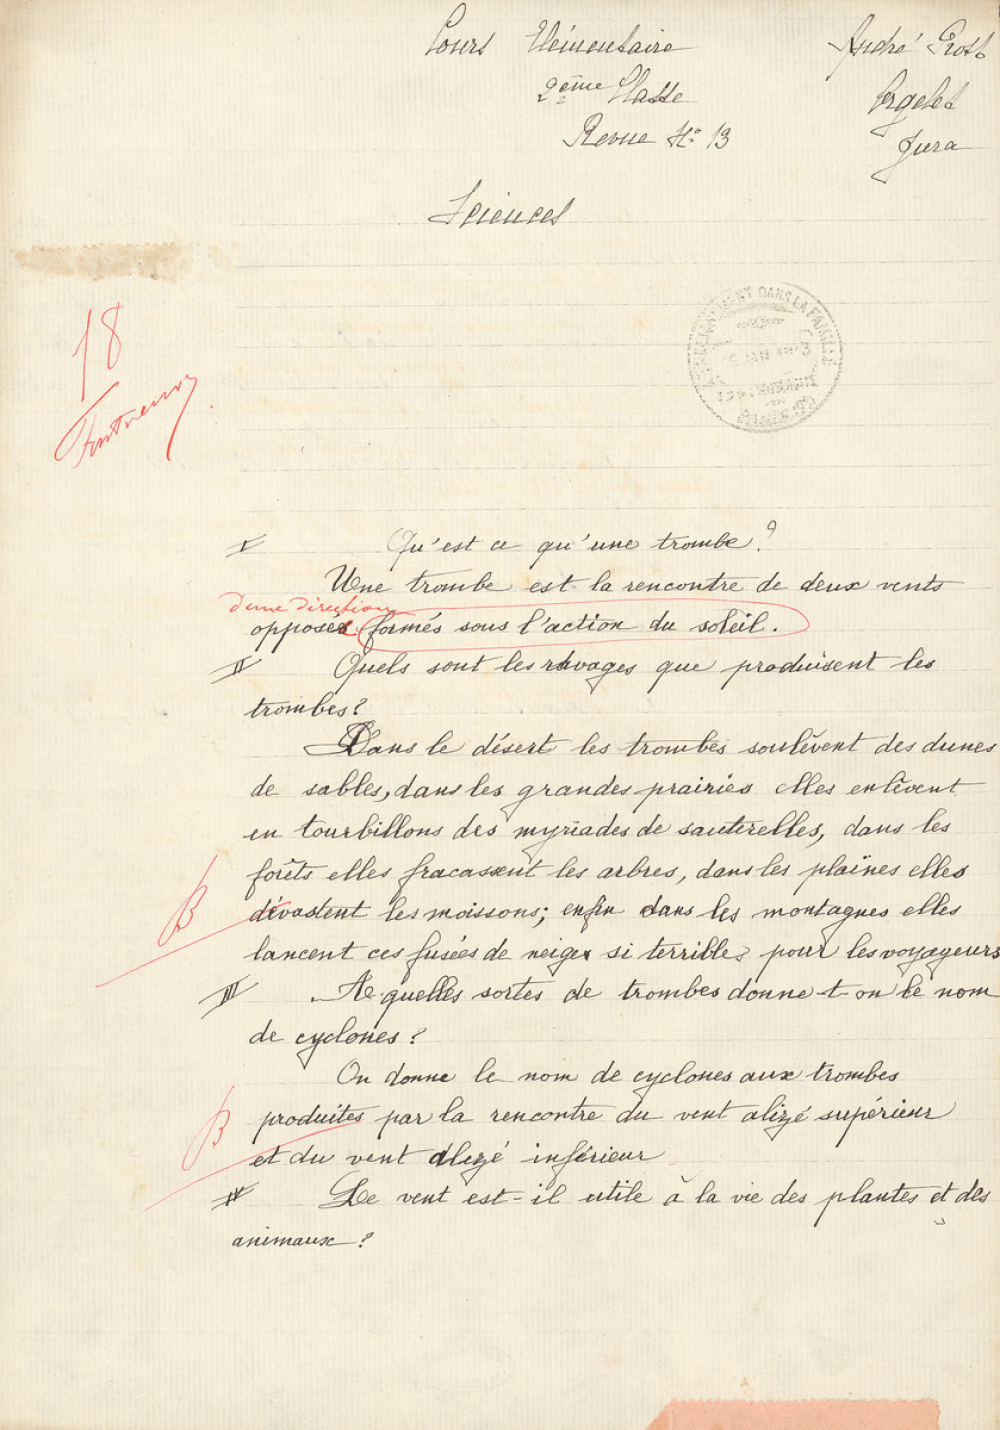 Cours Elémentaire
André Grost
2ème Classe
Orgelet
Revue No 13
Jura
Sciences
ENSEIGNEMENT DANS LA FAMILLE
18
I Qu'est ce qu'une trombe?
Une trombe est la rencontre de deux vents
d'une direction
opposés formés sous l'action du soleil.
II Quels sont les ravages que produisent les
trombes?
Dans le désert les trombes soulèvent des dunes
de sables, dans les grandes prairies elles enlèvent
en tourbillons des myriades de sauterelles, dans les
forêts elles fracassent les arbres, dans les plaînes elles
B dévastent les moissons; enfin dans les montagnes elles
lancent ces fusées de neige si terribles pour les voyageurs
III A quelles sortes de trombes donne-t-on le nom
de cyclones?
On donne le nom de cyclones aux trombes
B produites par la rencontre du vent alizé supérieur
et du vent alizé inférieur
IV Le vent est-il utile à la vie des plantes et des
animaux?